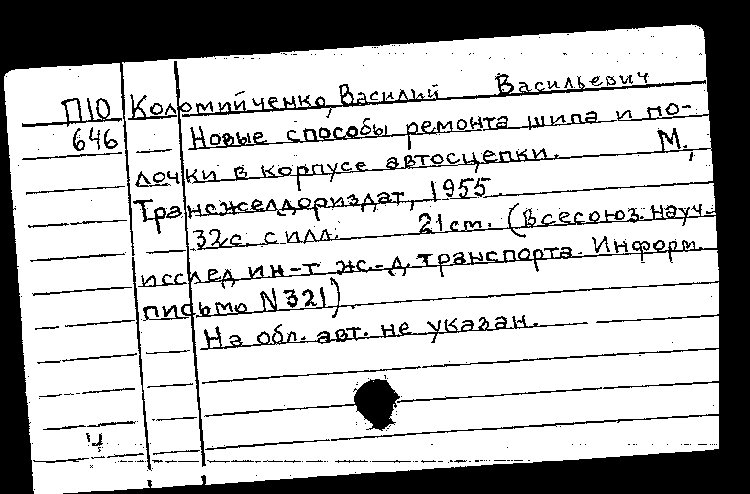 П10 Коломийченко, Василий Васильевич
646 Новые способы ремонта шипа и по-
лочки в корпусе автосцепки. М.,
Трансжелдориздат, 1955.
32с. с илл. 21см. (Всесоюз. науч.-
исслед ин-т ж.-д. транспорта. Информ.
письмо N321).
На обл. авт. не указан.
ч